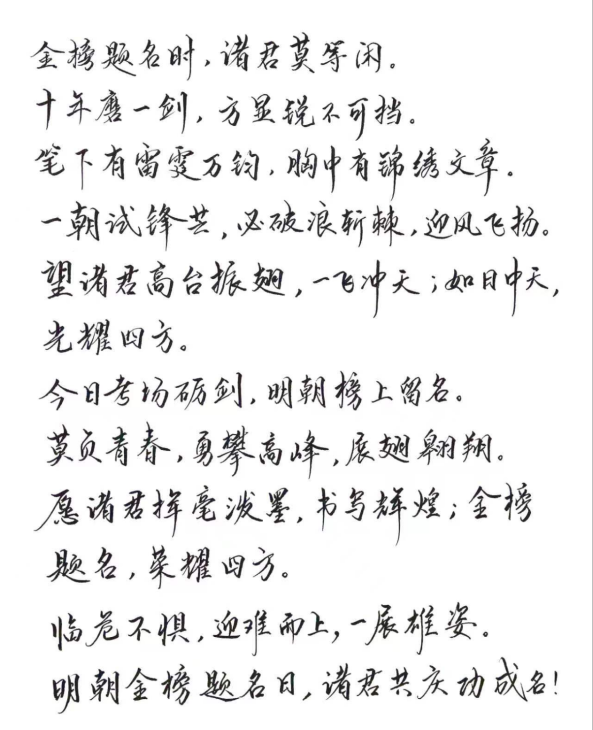 金榜题名时，诸君莫等闲。
十年磨一剑，方显锐不可挡。
笔下有雷霆万钧，胸中有锦绣文章。
一朝试锋芒，必破浪斩棘，迎风飞扬。
望诸君高台振翅，一飞冲天；如日中天，
光耀四方。
今日考场砺剑，明朝榜上留名。
莫负青春，勇攀高峰，展翅翱翔。
愿诸君挥毫泼墨，书写辉煌；金榜
题名，荣耀四方。
临危不惧，迎难而上，一展雄姿。
明朝金榜题名日，诸君共庆功成名！